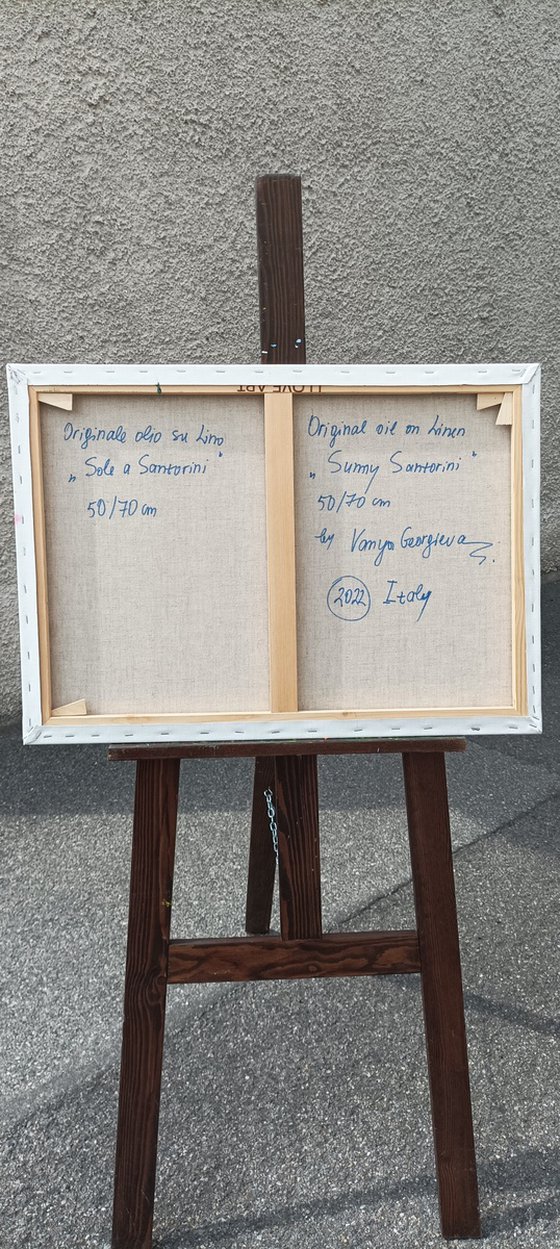 I LOVE ART
Originale olio su Lino
„ Sole a Santorini "
50/70 cm
Original oil on Linen
„ Sunny Santorini "
50/70 cm
by Vanya Georgieva
2022 Italy